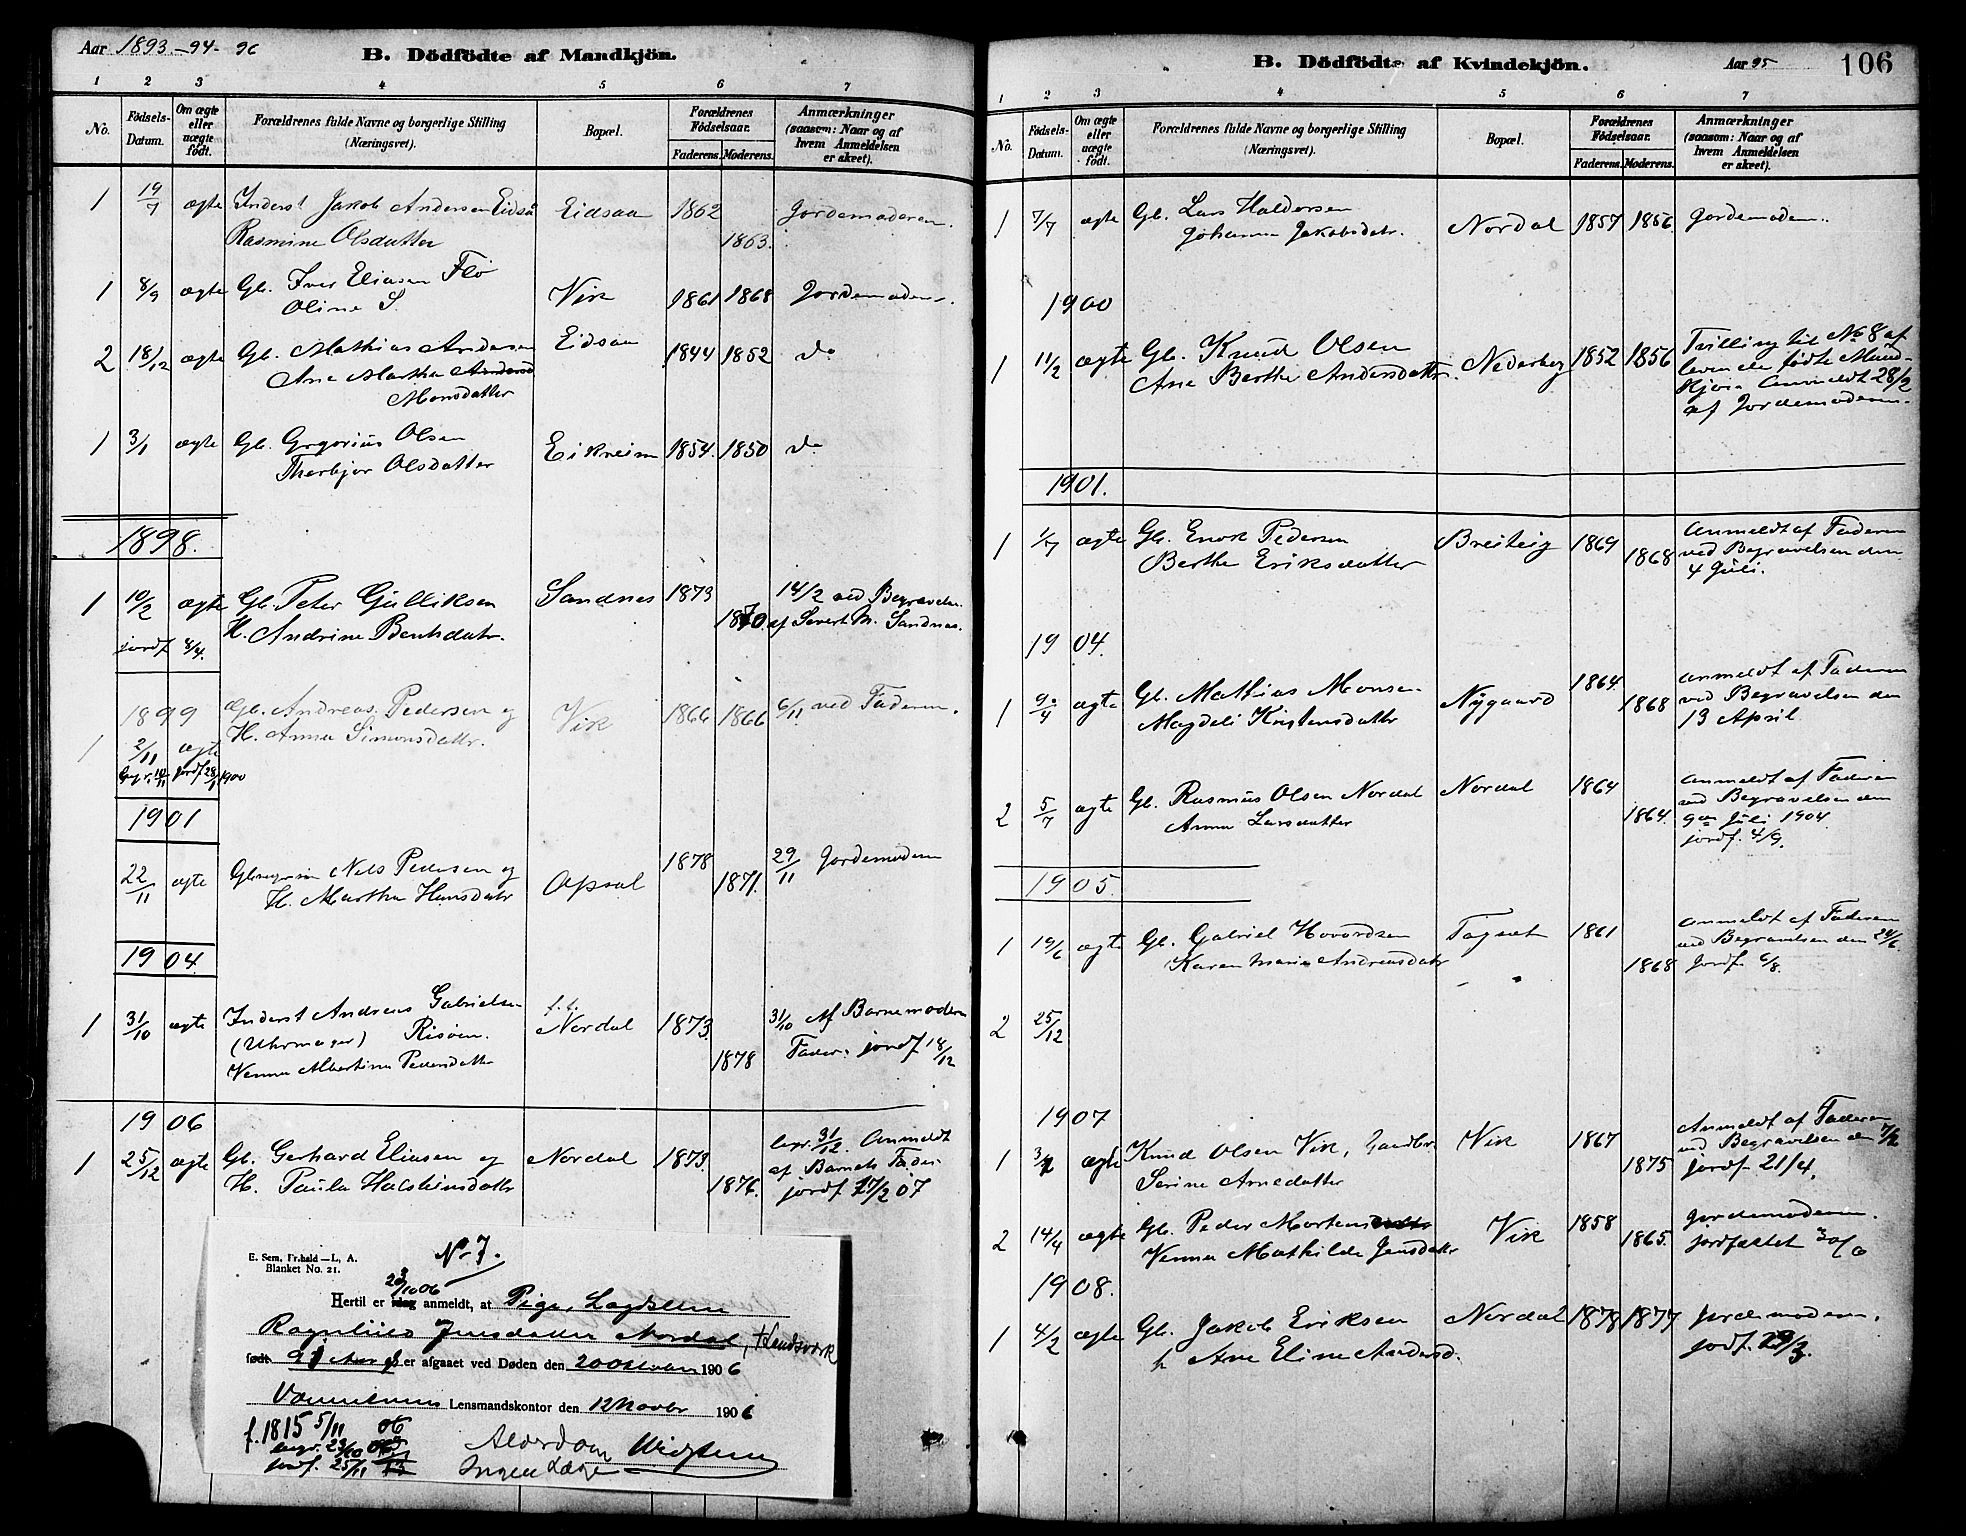 Aar 1893.-94- 96
B. Dödfödte af Mandkjön.
1 2 3 4 5 6 7
No.
Födsels-Datum.
Om ægte eller uægte födt.
Forældrenes fulde Navne og borgerlige Stilling
(Næringsvei).
Bopæl.
Forældrenes Födselsaar.
Faderens. Moderens.
Anmærkninger
(saasom: Naar og af
hvem Anmeldelsen
er skeet).
1 19/7 ægte Inderst Jakob Andersen Eidså Eidsaa 1862 Jordemoderen.
Rasmine Olsdatter 1863.
1 8/9 ægte Gb. Iver Eliasen Flö Vik 1861 1868 Jordemoderen.
Oline S.
2 18/12 ægte Gb. Mathias Andersen Eidsaa 1844 1852 do
Ane Martha
Monsdatter
1 3/1 ægte Gb. Grgorius Olsen Eikreim 1854. 1850 do
Thorbjor Olsdatter
1898.
1 10/2 ægte Gb. Peter Gulliksen Sandnes 1873 14/2 ved Begravelse
H. Andrine Bentsdatr. 1870. af Sivert M. Sandnes.
jordf 8/4.
1899 Gb. Andreas Pedersen og Vik 1866 1866 6/11 ved Faderen.
1 2/11 ægte H. Anna Simonsdattr.
begr. 10/11 jordf 28/1 1900
1901
22/11 ægte Nils Pedersen og Opsal 1878 29/11 Jordemoderen
H. Martha Hansdatr 1871.
1904
1 31/10 ægte Inderst Andreas Gabrielsen t.t. Nordal 1873. 31/10 Af Barnemoderen
(Uhrmager) Risöen. Fader. jordf 18/12
Venna Albertine Pedersdattr 1878
1906
1 25/12 ægte Gb. Gerhard Eliasen og Nordal 1873. begr. 31/12. Anmeldt
H. Paula Halsteinsdattr 1876. af Barnets Fader
jordf 17/2 07
E. Sem, Fr.hald —L. A.
Blanket No. 21.
No 7.
23/10 06
Hertil er idag anmeldt, at Pige, Lagdslem
Jensdatter Nordal,
födt er afgaaet ved Døden den 20 1906
Lensmandskontor den 12 Novbr 1906
f. 1815 5/11 06
begr. 23/10 06
jordf. 25/11
Alderdom
Ingen Læge
B. Dödfödte af Kvindekjön.
Aar 95
106
1 2 3 4 5 6 7
No.
Födsels-Datum.
Om ægte eller uægte födt.
Forældrenes fulde Navne og borgerlige Stilling
(Næringsvei).
Bopæl.
Forældrenes Födselsaar.
Faderens. Moderens.
Anmærkninger
(saasom: Naar og af
hvem Anmeldelsen
er skeet).
1 7/7 ægte Gb. Lars Haldorsen Nordal 1857 1856. Jordemoderen.
Johanna Jakobsdatr.
1900
1 11/2 ægte Gb. Knud Olsen Nederberg 1852 1856 Tvilling til No 8 af
Ane Berthe Andersdattr. levende fødte Mand-
kjön. Anmeldt 28/2
af Jordemoderen.
1901.
1 1/7 ægte Gb. Enok Pedersen Breiteig 1869 Anmeldt af Faderen
Berthe Eriksdatter 1868 ved Begravelsen den
4 Juli.
1904.
1 9/4 ægte Gb. Mathias Monsen Nygaard 1864. Anmeldt af Faderen
Magdeli Kristensdattr 1868 ved Begravelsen den
13 April.
2 5/7 ægte Gb. Rasmus Olsen Nordal Nordal 1864 Anmeldt af Faderen
Anna Larsdatter 1864. ved Begravelsen den
9de Juli 1904
jordf. 4/9.
1905.
1 19/6 ægte Gb. Gabriel Hovardsen 1861 Anmeldt af Faderen
Karen Marie Andreasdatr 1868 ved Begravelsen den 24/6.
Jordf. 6/8.
2 25/12
1907
1 ægte Knud Olsen Vik, Gaardbr. Vik 1867 Anmeldt af Faderen
Serine Arnedatter 1875 ved Begravelsen den 7/2
jordf. 21/4.
2 14/4 ægte Gb. Peder Mortens Vik 1858 Jordemoderen.
Venna Mathilde Jensdattr 1865. jordfæstet
1908.
1 4/2 ægte Gb. Jakob Eriksen Nordal 1878 1877 Jordemoderen.
h Ane Eline Andersd. jordf. 29/3.